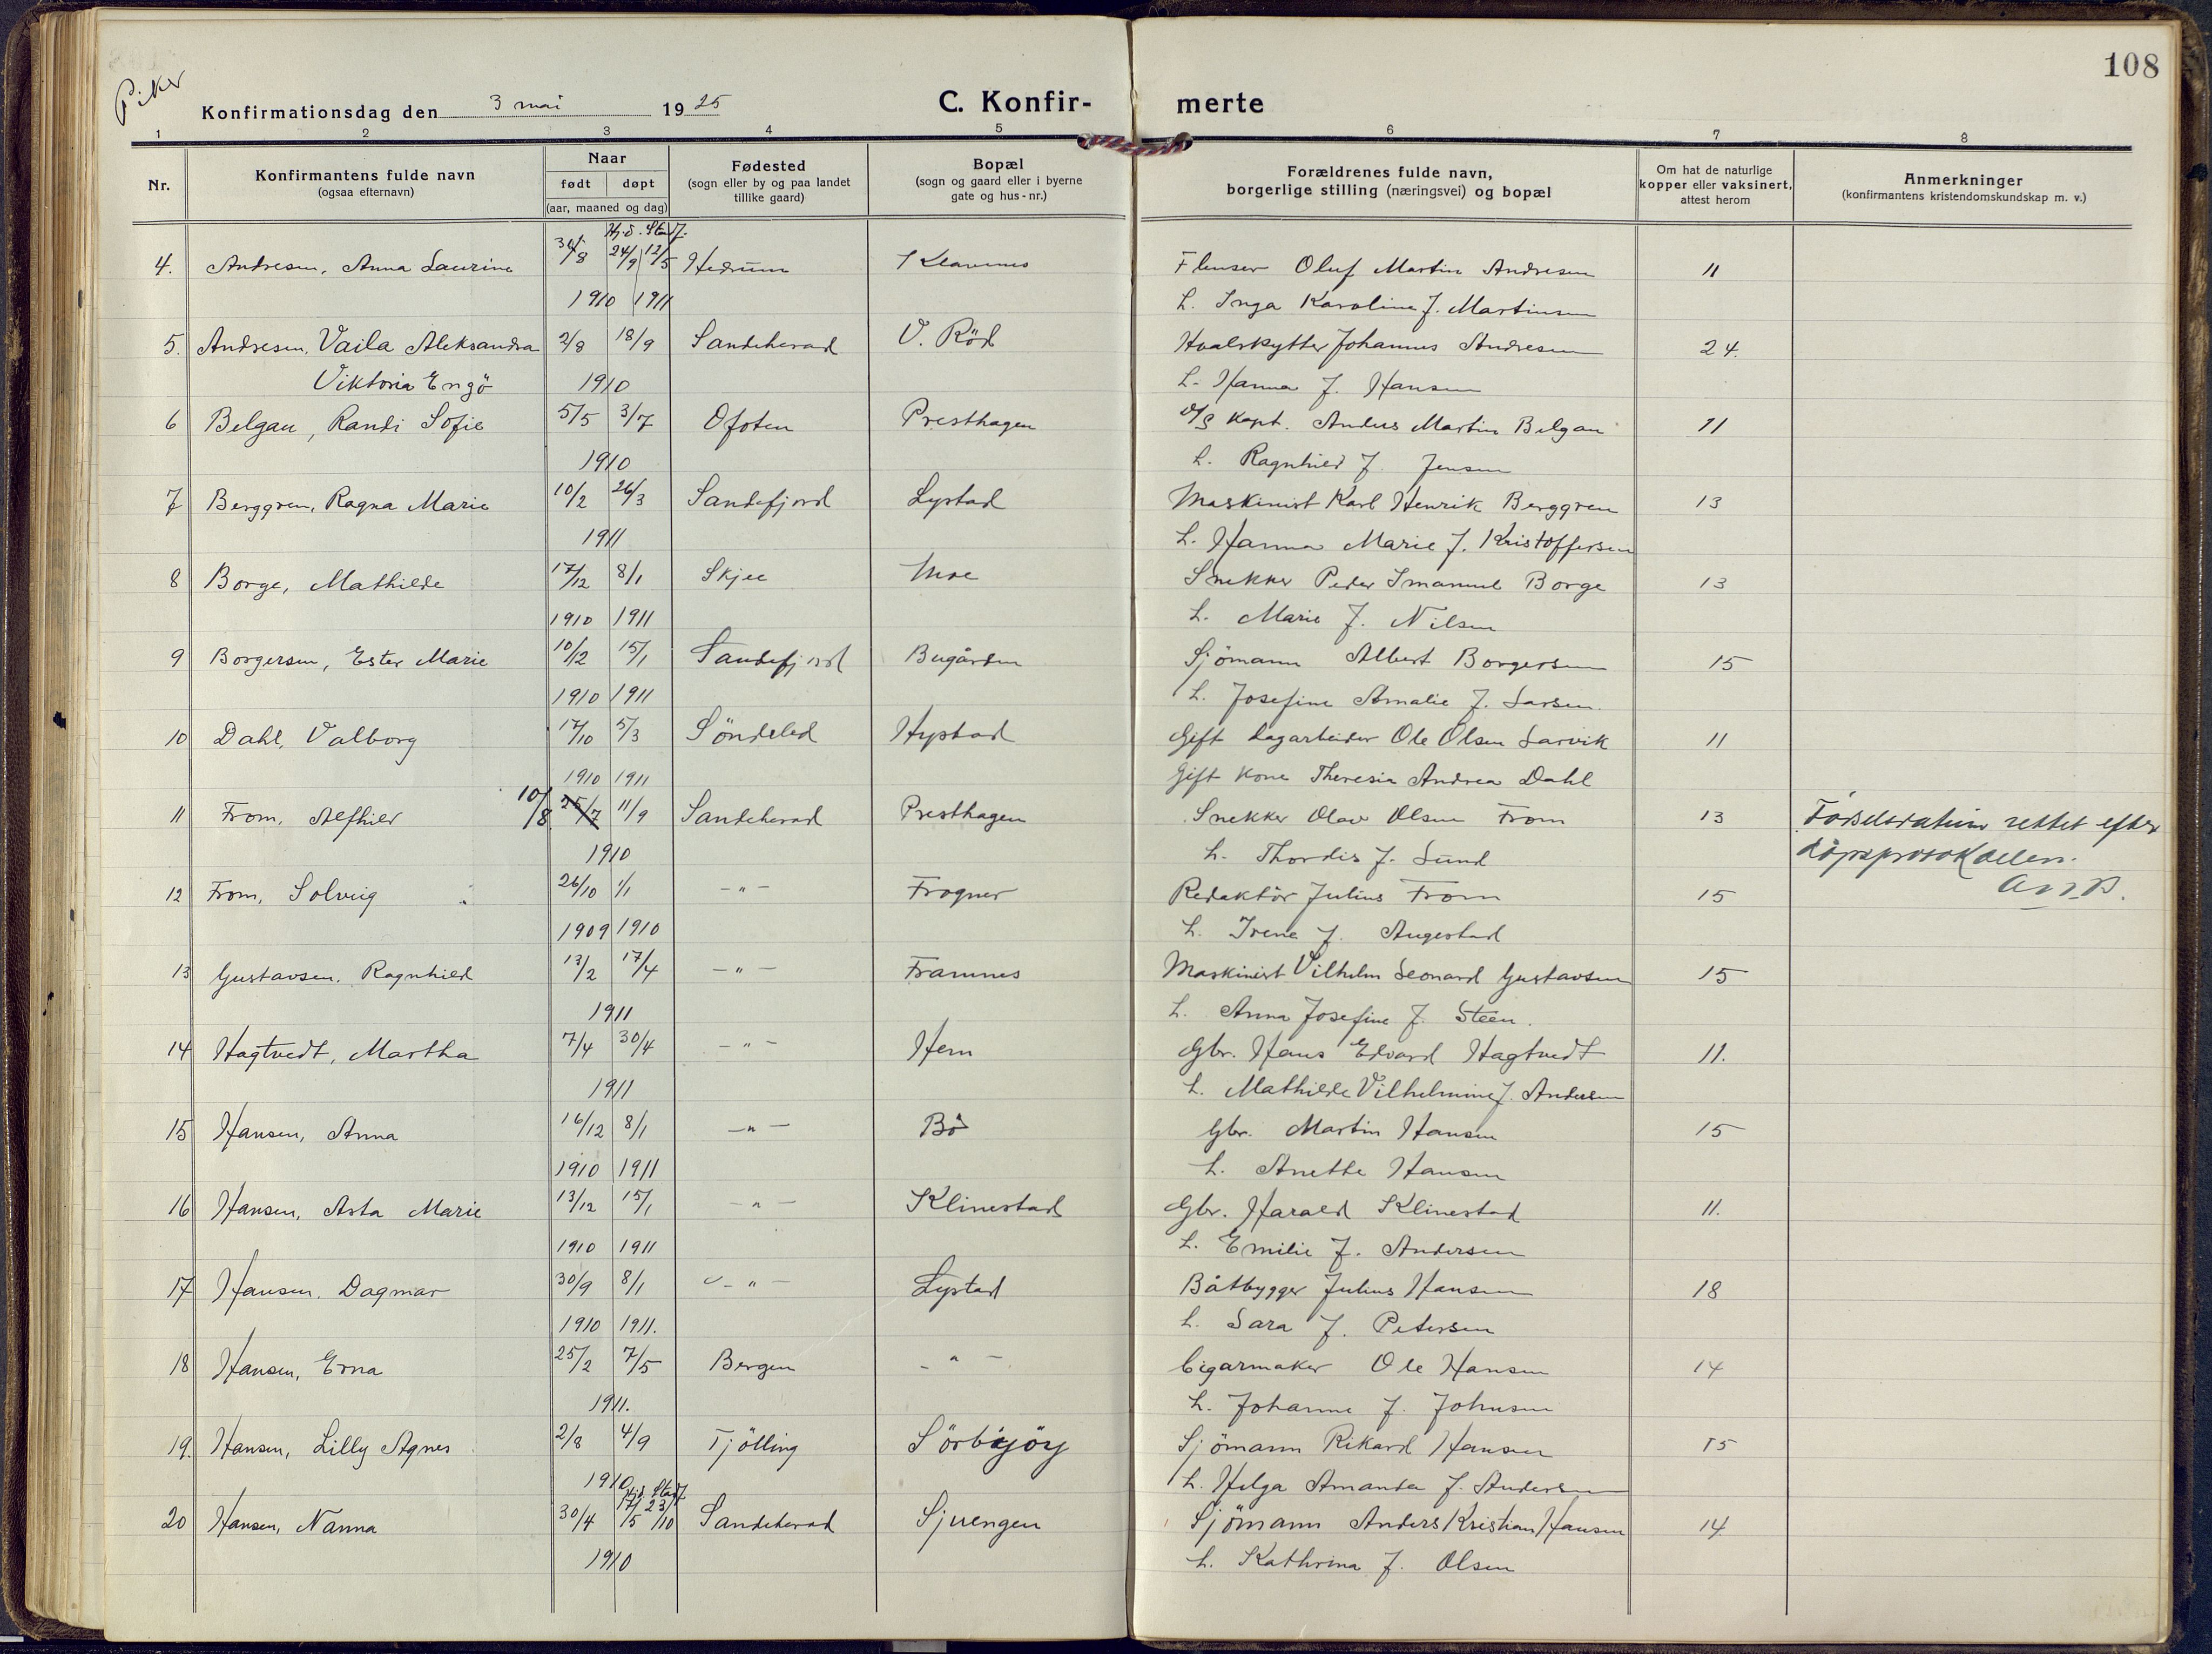 108
Piker
Konfirmationsdag den 3 mai 1925 C. Konfir- merte
1 2 3 4 5 6 7 8
Nr. Konfirmantens fulde navn (ogsaa efternavn) Naar født døpt (aar, maaned og dag) Fødested (sogn eller by og paa landet tillike gaard) Bopæl (sogn og gaard eller i byerne gate og hus-nr.) Forældrenes fulde navn, borgerlige stilling (næringsvei) og bopæl Om hat de naturlige kopper eller vaksinert, attest herom Anmerkninger (konfirmantens kristendomskundskap m. v.)
Hj.d. Stadf.
4. Andresen, Anna Laurine 24/9 12/5 Hedrum Klavenes Flenser Oluf Martin Andresen 11
1910 1911 h. Inga Karoline f. Martinsen
5. Andresen, Vaila Aleksandra 2/8 18/9 Sandeherad V. Röd Hvalskytter Johannes Andresen 24.
Viktoria Engö 1910 h. Hanna f. Hansen
6 Belgau, Randi Sofie 5/5 3/7 Ofoten Presthagen Kapt. Anders Martin Belgau 11
1910 h. Ragnhild f. Jensen
7 Berggren, Ragna Marie 10/2 26/3 Sandefjord Lystad Maskinist Karl Henrik Berggren 13
1911 h. Hanna Marie f. Kristoffersen
8 Borge, Mathilde 17/12 8/1 Skjee Moe Snekker Peder Imanuel Borge 13
1910 1911 h. Marie f. Nilsen
9 Borgersen, Ester Marie 10/2 15/1 Sandefjord Bugården Sjömann Albert Borgersen 15
1910 1911 h. Josefine Amalie f. Larsen.
10 Dahl, Valborg 17/10 5/3 Söndeled Hystad Gift dagarbeider Ole Olsen Larvik 11
1910 1911 Gift kone Theresia Andrea Dahl
11 From, Alfhild 10/8 25/7 11/9 Sandeherad Presthagen Snekker Olav Olsen From 13 Födselsdatum rettet efter
1910 h. Thordis f. Lund döpsprotokollen.
12 From, Solveig 26/10 1/1 -"- Frogner Redaktör Julius From 15
1909 1910 h. Irene f. Augestad
13 Gustavsen. Ragnhild 13/2 17/4 -"- Framnes Maskinist Vilhelm Leonard Gustavsen 15
1911 h. Anna Josefine f. Steen.
14 Hagtvedt, Martha 7/4 30/4 -"- Hem Gbr. Hans Edvard Hagtvedt 11.
1911 h. Mathilde Vilhelmine f. Andersen
15 Hansen, Anna 16/12 8/1 -"- Bö Gbr. Martin Hansen 15
1910 1911 h. Anette Hansen
16 Hansen, Asta Marie 13/12 15/1 -"- Klinestad Gbr. Harald Klinestad 11.
1910 1911 h. Emilie f. Andersen
17 Hansen. Dagmar 30/9 8/1 -"- Lystad Båtbygger Julius Hansen 18
1910 1911. h. Sara f. Petersen
18 Hansen, Erna 25/2 7/5 Bergen -"- Cigarmaker Ole Hansen 14
1911. h. Johanne f. Johnsen
19. Hansen, Lilly Agnes 2/8 4/9 Tjölling Sjömann Rikard Hansen 15
1910 h. Helga Amanda f. Andersen
Hjd. Stadf.
20 Hansen, Nanna 30/4 17/5 23/10 Sandeherad Sjuengen Sjömann Anders Kristian Hansen 14
1910 h. Kathrina f. Olsen